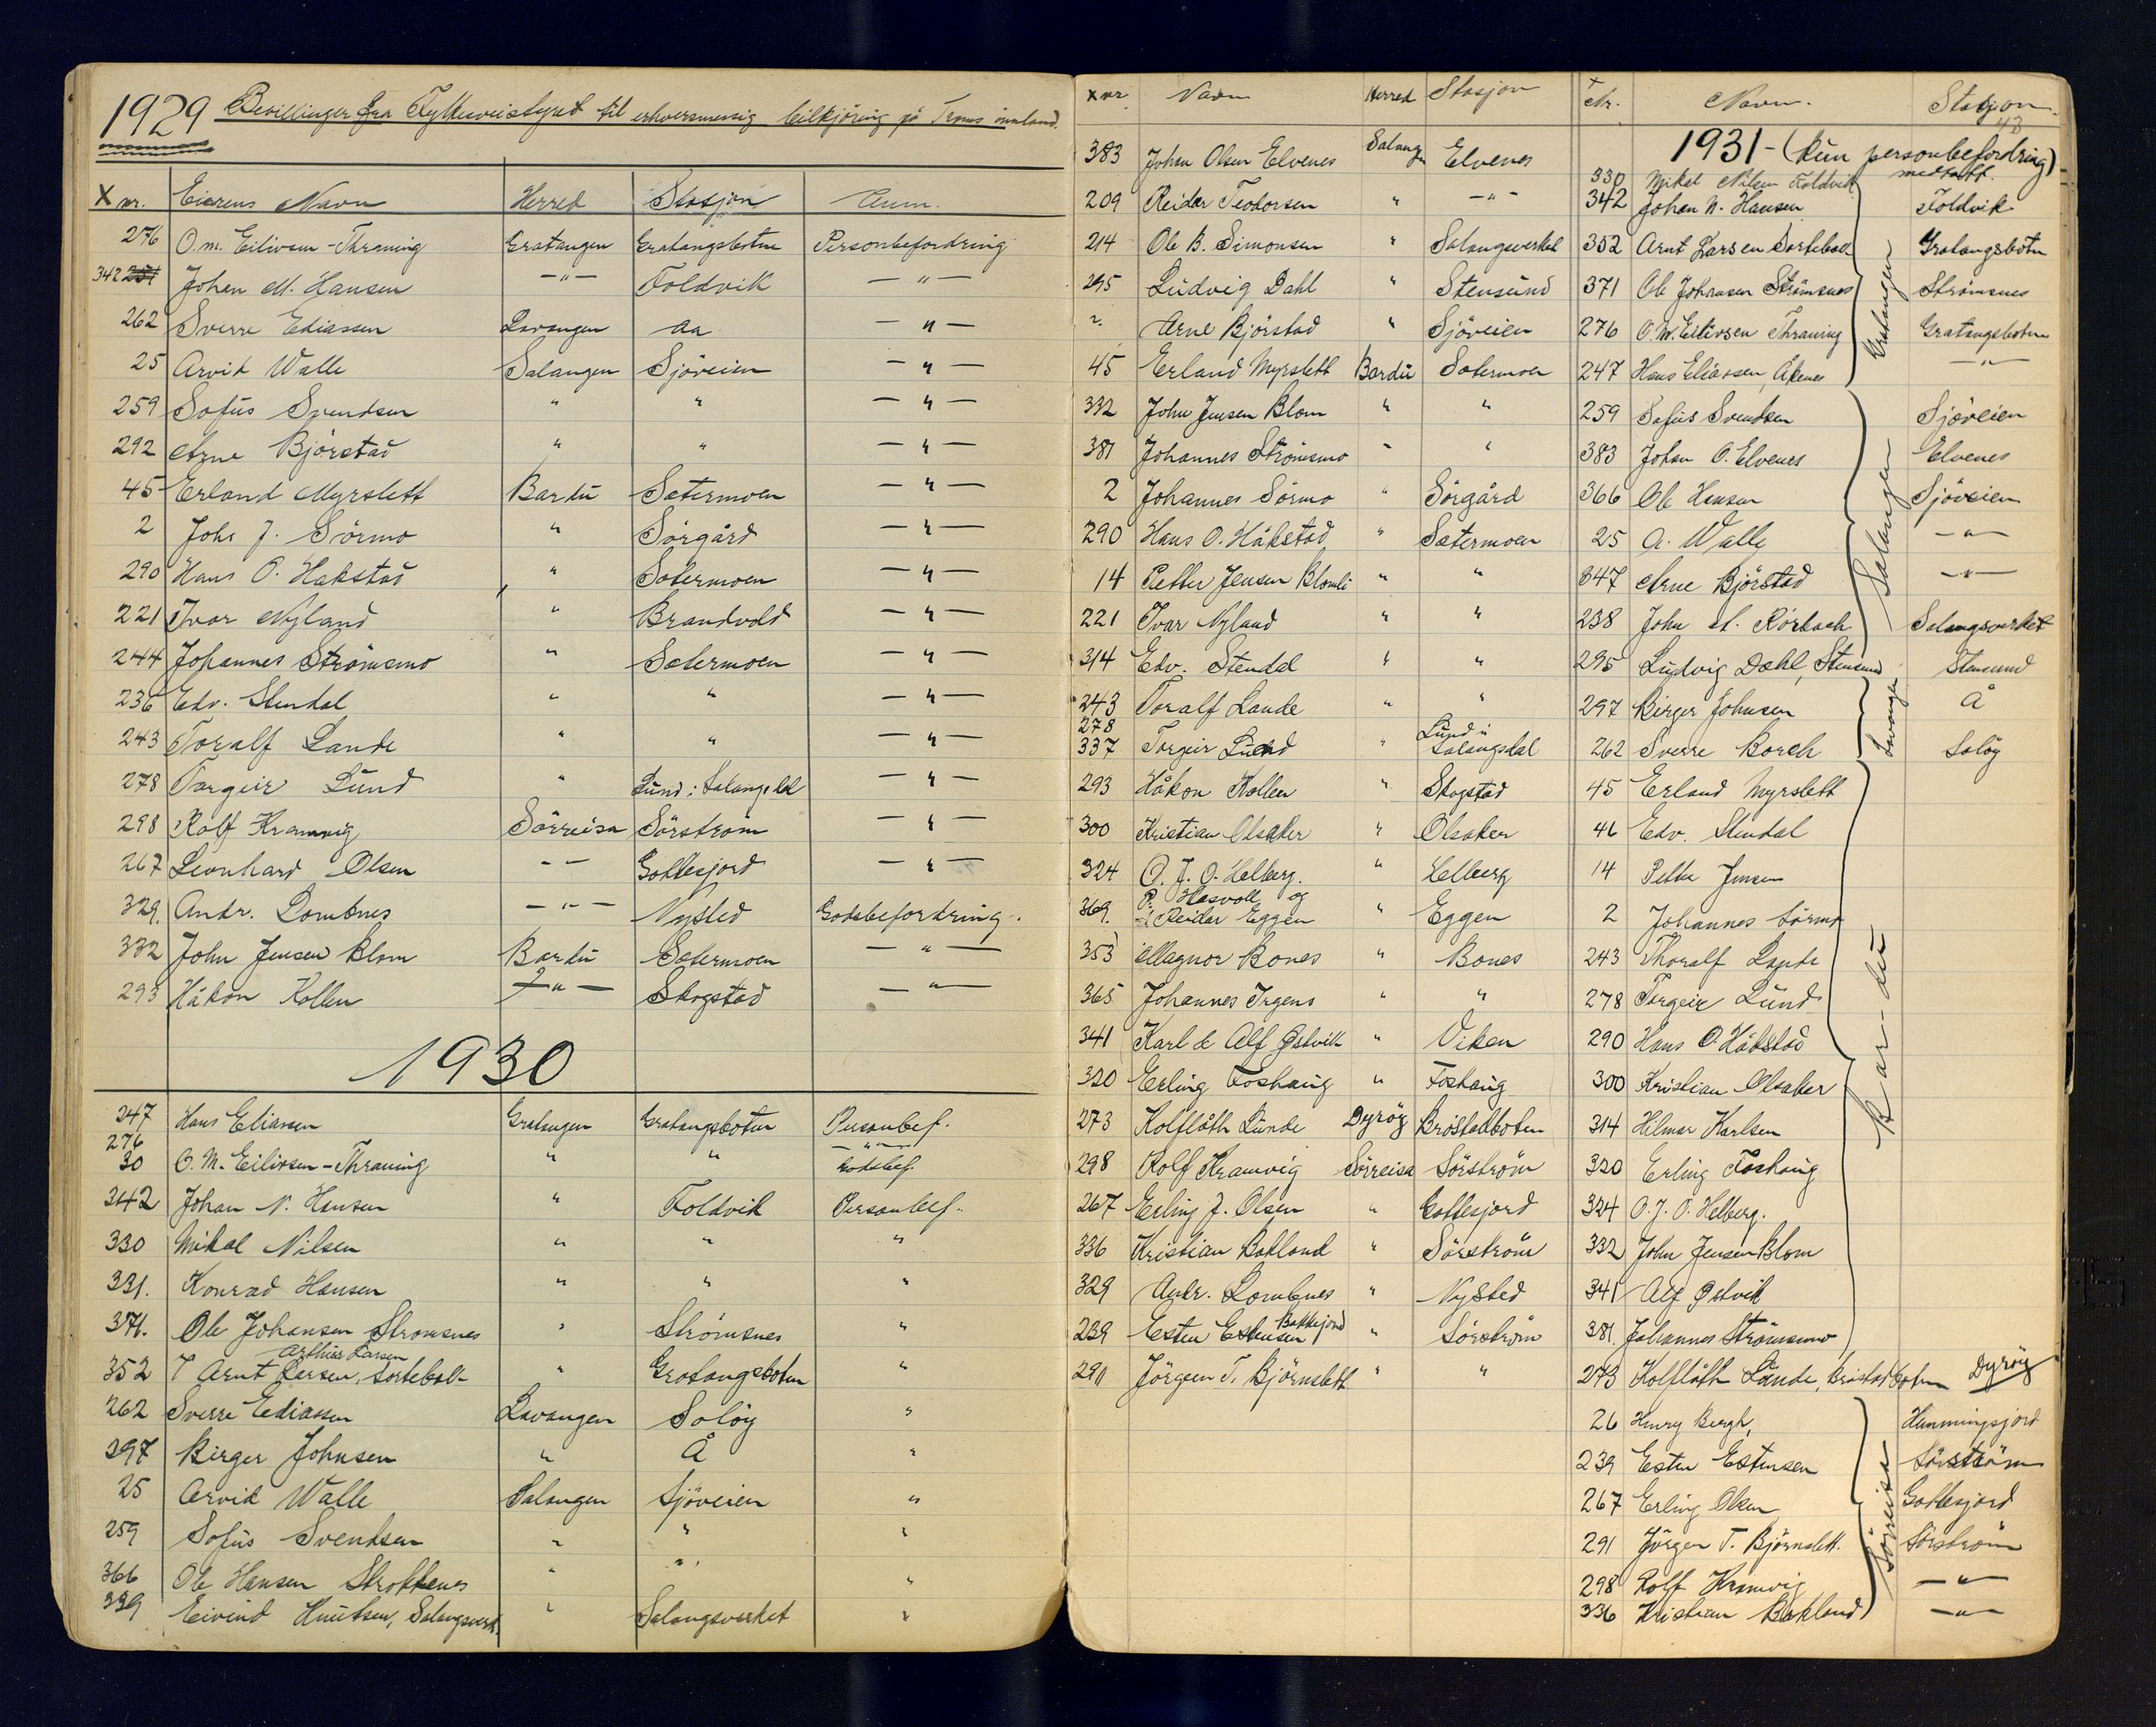 1929 Bevillinger fra Fylkesveistyret til erhversmessig bilkjöring på Troms innland.
X nr. Eierens Navn Herred Stasjon Anm.
276 O.M. Eilivsen-Thraning Gratangen Gratangsbotn Personbefordring
342 251 Johan M. Hansen —"— Foldvik —"—
262 Sverre Ediassen Lavangen Aa —"—
25 Arvid Walle Salangen Sjöveien —"—
259 Sofus Svendsen " " —"—
292 Arne Björstad " " —"—
45 Erland Myrslett Bardu Setermoen —"—
2 Johs J. Sörmo " Sörgård —"—
290 Hans O. Hakstad " Setermoen —"—
221 Ivar Nyland " Brandvold —"—
244 Johannes Strömsmo " Setermoen —"—
236 Edv. Stendal " " —"—
243 Toralf Lande " " —"—
278 Torgeir Lund " Lund i Salangsdal —"—
298 Rolf Kramvig Sörreisa Sörström —"—
267 Leonhard Olsen — — Gottesjord —"—
329. Andr. Lombnes —"— Nysted Godsbefordring.
332 John Jensen Blom Bardu Setermoen —"—
293 Håkon Kollen —"— Skogstad —"—
1930
247 Hans Eliassen Gratangen Gratangsbotn Personbef.
276 —"—
30 O. M. Eilivsen-Thraning " " Godsbef.
342 Johan N. Hansen " Foldvik Personbef.
330 Mikal Nilsen " " "
331. Konrad Hansen " " "
371. Ole Johansen Strömsnes " Strömsnes "
Arthur Larsen
352 Arnt Larsen, Sortebak " Gratangsbotn "
262 Sverre Ediassen Lavangen Soløy "
297 Birger Johnsen " Å "
25 Arvid Walle Salangen Sjöveien "
259 Sofus Svendsen " " "
366 Ole Hansen Strokkenes " " "
339 Eivind Knutsen, Salangsverk. " Salangsverket "
X nr Navn Herred Stasjon
383 Johan Olsen Elvenes Salangen Elvenes
209 Reidar Teodorsen " —"—
214 Ole B. Simonsen " Salangsverket
295 Ludvig Dahl " Stensund
Arne Björstad " Sjöveien
45 Erland Myrslett Bardu Setermoen
332 John Jensen Blom " "
381 Johannes Strömsmo " "
2 Johannes Sörmo " Sörgård
290 Hans O. Håkstad " Setermoen
14 Petter Jensen Blomli " "
221 Ivar Nyland " "
314 Edv. Stendal " "
243 Toralf Lande " "
278 Lund i
337 Torgeir Lund " Salangsdal
293 Håkon Kollen " Skogstad
300 Kristian Olsaker " Olsaker
324 O. J. O. Helberg. " Helberg
P. Hasvoll og
369. Reidar Eggen " Eggen
353 Magnor Bones " Bones
365 Johannes Irgens " "
341 Karl & Alf Østvik " Viken
320 Erling Foshaug " Foshaug
273 Kolflåth Lunde Dyröy Bröstadbotn
298 Rolf Kramvig Sörreisa Sörström
267 Erling J. Olsen " Gottesjord
336 Kristian Bakland " Sörström
329 Andr. Lombnes " Nysted
239 Esten Estensen Bakkejord " Sörström
291 Jörgen T. Björnslett " "
X Nr. Navn. Stasjon.
43
1931 - (kun personbefordring)
medtatt.
330 Mikal Nilsen Foldvik
342 Johan N. Hansen Foldvik
352 Arnt Larsen Sortebak Gratangsbotn
371 Ole Johansen Strömsnes Strömsnes
276 O.M. Eilivsen Thraning Gratangsbotn
247 Hans Eliassen, Åkenes —"—
Gratangen
259 Sofus Svendsen Sjöveien
383 Johan O. Elvenes Elvenes
366 Ole Hansen Sjöveien
25 A. Walle —"—
347 Arne Björstad —"—
238 John A. Rörbach Salangsverket
295 Ludvig Dahl, Stensund Stensund
Salangen
297 Birger Johnsen Å
262 Sverre Borch Soløy
Lavangen
45 Erland Myrslett
46 Edv. Stendal
14 Petter Jensen
2 Johannes Sörmo
243 Thoralf Lande
278 Torgeir Lund
290 Hans O. Håkstad
300 Kristian Olsaker
314 Hilmar Karlsen
320 Erling Foshaug
324 O. J. O. Helberg.
332 John Jensen Blom
341 Alf Østvik
381. Johannes Strömsmo
Bar-du
273 Kolflåth Lunde, Bröstadbotn Dyröy
26 Henry Bergh, Hemmingsjord
239 Esten Estensen Sörström
267 Erling Olsen Gottesjord
291 Jörgen T. Björnslett. Sörström
298 Rolf Kramvig —"—
336 Kristian Bakland —"—
Sörreisa